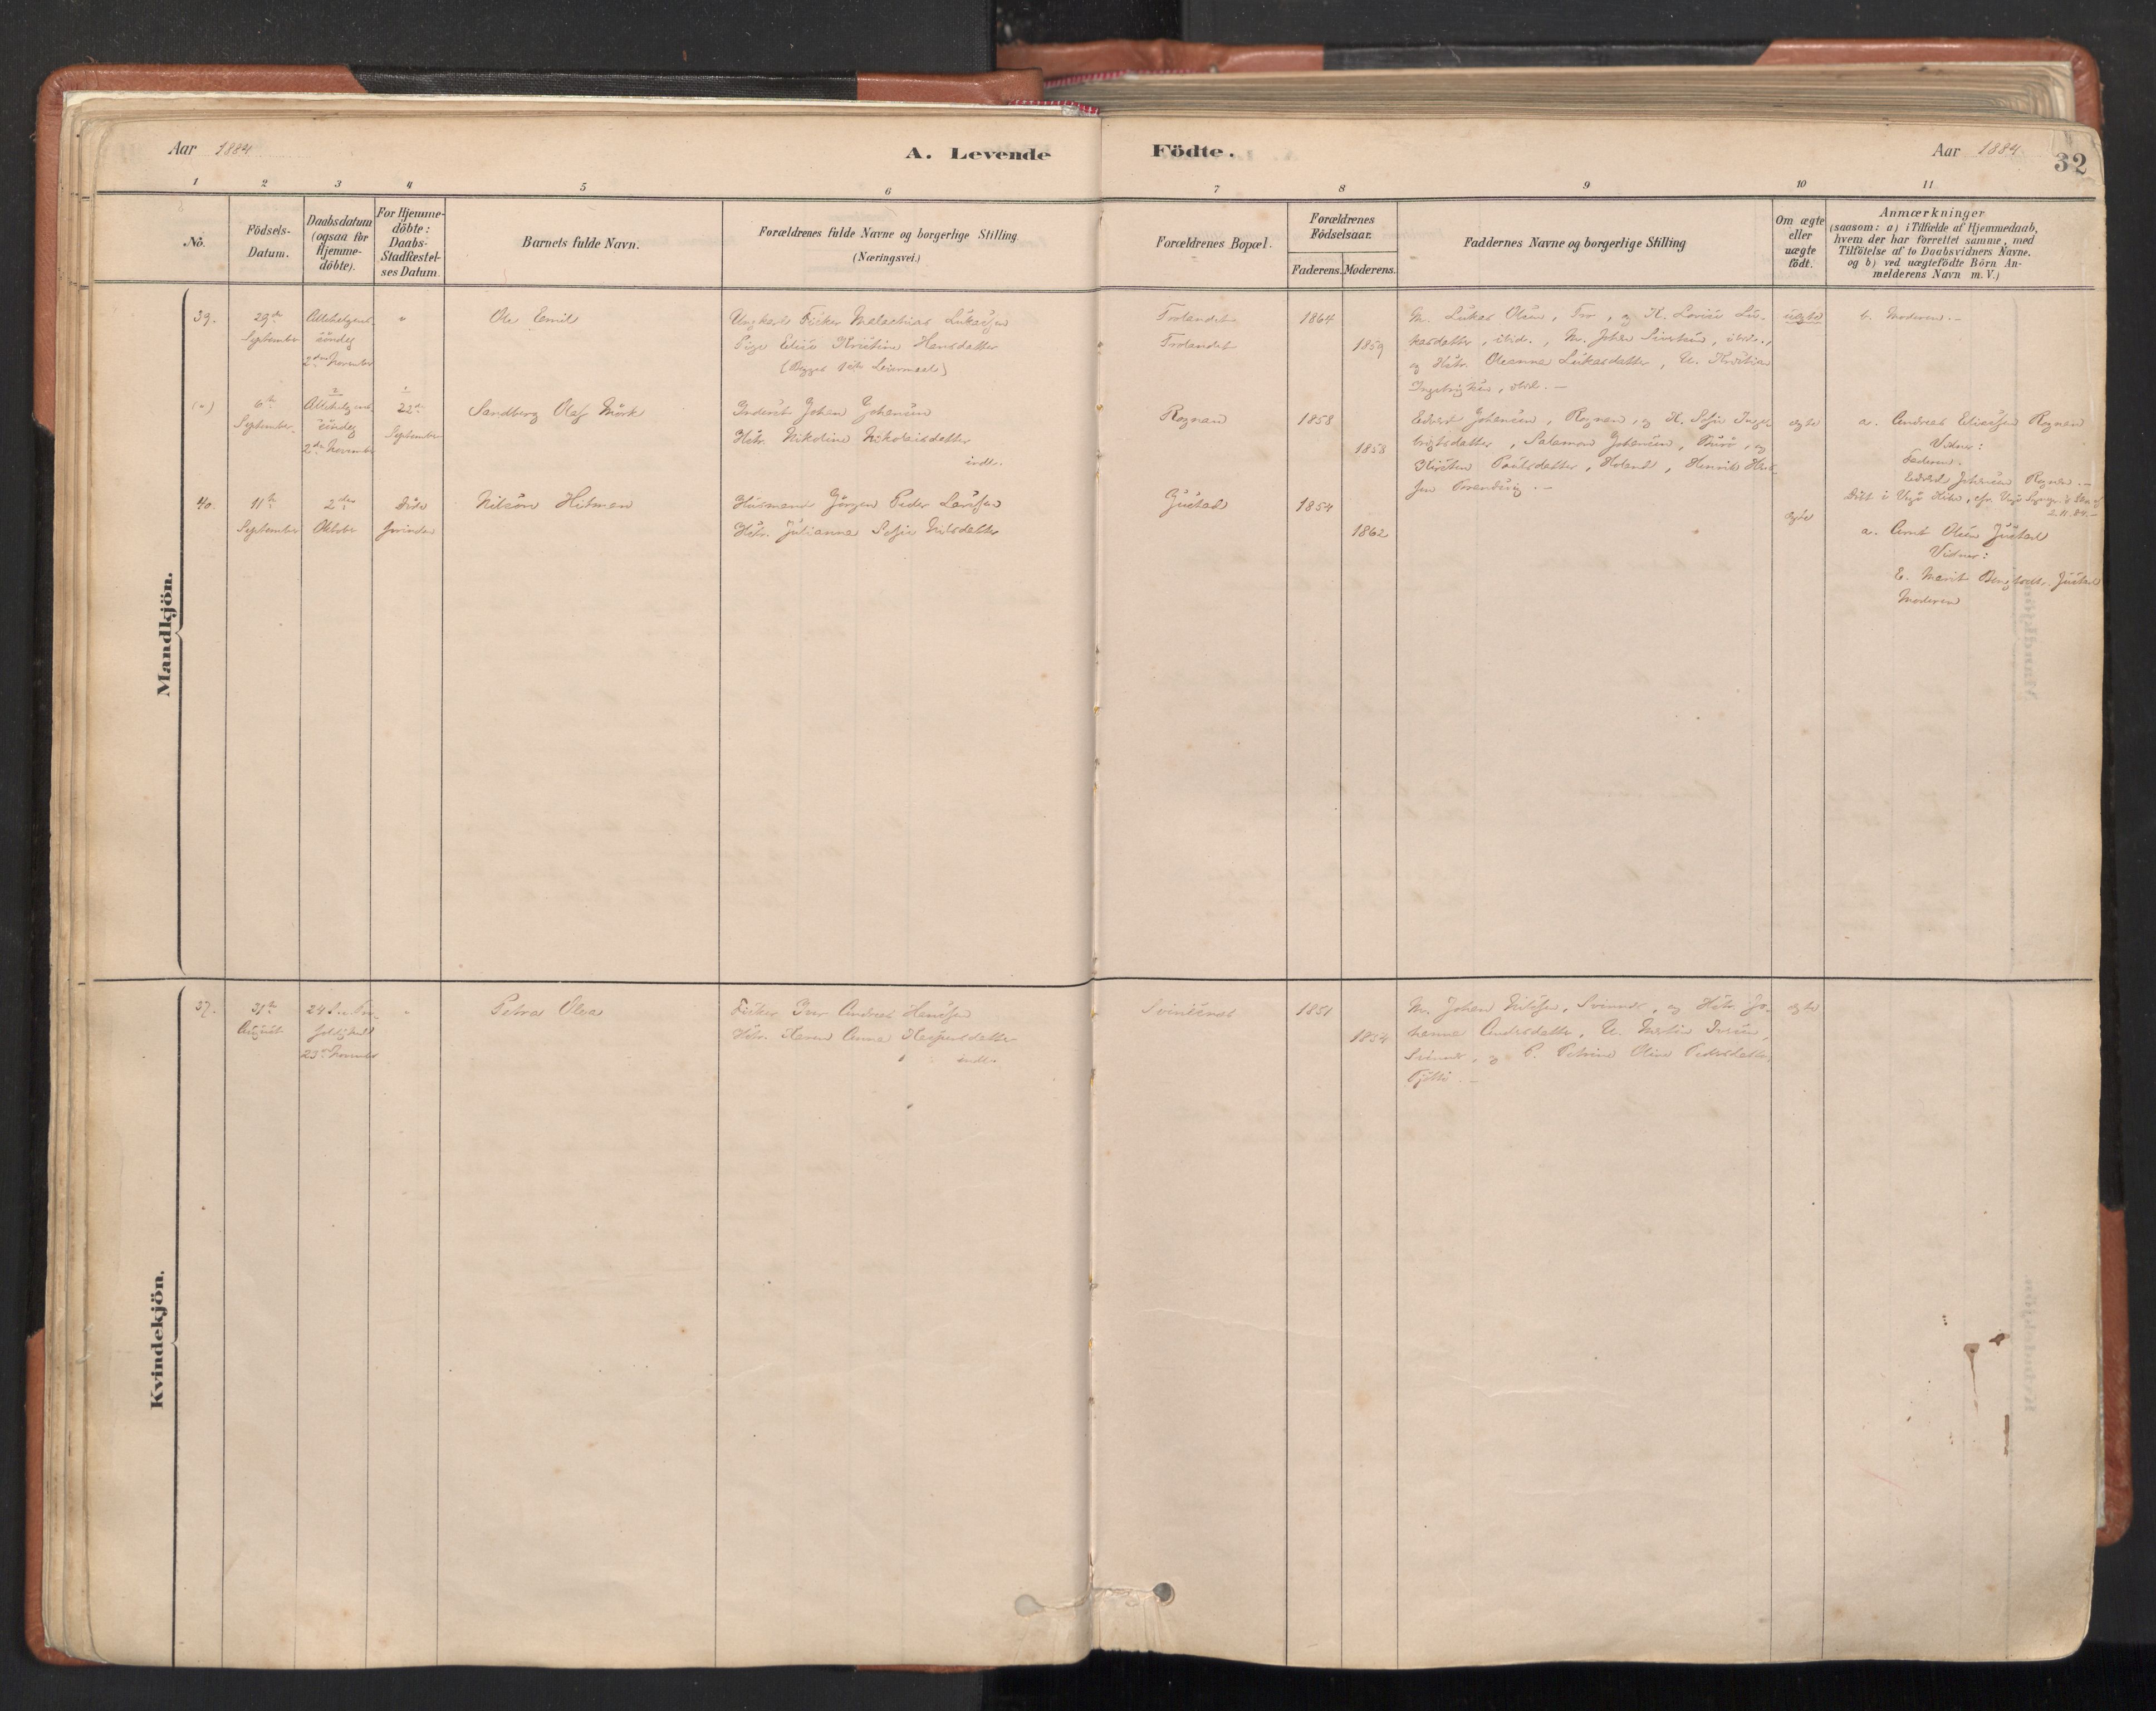 Aar 1884
A. Levende Födte.
Aar 1884
32
1 2 3 4 5 6 7 8 9 10 11
No.
Födsels-Datum.
Daabsdatum (ogsaa for Hjemme-döbte).
For Hjemme-döbte: Daabs-Stadfæstel-ses Datum.
Barnets fulde Navn.
Forældrenes fulde Navne og borgerlige Stilling (Næringsvei.)
Forældrenes Bopæl.
Forældrenes Födselsaar.
Faderens. Moderens.
Faddernes Navne og borgerlige Stilling
Om ægte eller uægte födt.
Anmærkninger
(saasom: a) i Tilfælde af Hjemmedaab,
hvem der har forrettet samme, med
Tilföielse af to Daabsvidners Navne.
og b) ved uægtefödte Börn An-
melderens Navn m. V.)
Mandkjön.
39. 29de September
Allehelgens söndag 2den November
"
Ole Emil
Ungkarl Fisker Malachias Lukassen
Pige Elise Kristine Hansdatter
Trolandet
Trolandet
1864
1859
M. Lukas Olsen, Tro, og K. Lovise Lu-
kasdatter, ibid., M. Johan Sivertsen, ibid.,
og Hstr. Oleanna Lukasdatter, U. Kristian
uægte
b. Moderen.
(-) 6te September
Allehelgens söndag 2den November
22de September
Sandberg Olaf Mörk
Inderst Johan Johansen
Hstr. Nikoline Nikolaisdatter
indl.
Rognan
1858
1858
Edvard Johansen, Rognan, og K. Sofie Inge-
brigtsdatter, Salamon Johansen, og
Kirsten Paulsdatter, Holand, Henrik Han-
sen
ægte
a. Andreas Eliassen Rognan
Vidner:
Faderen.
Edvard Johansen Rognan.
2.11.84.
40. 11te September
2den Oktober
Döde forinden
Nilsson Hitman
Husmand Jörgen Peder Larssen
Hstr. Julianna Sofie Nilsdatter
Gustad
1854
1862
ægte
a. Arnt Olsen Gustad
Vidner:
E. Marit Gustad
Moderen
Kvindekjön.
37. 31te August
23de November
"
Petra Olea
Fisker Iver Andreas Hansen
Hstr. Karen Anna Kaspersdatter
indl.
1851
1854
M. Johan Nilssen, Svinnes, og Hstr. Jo-
hanna Andersdatter, U. Martin Iversen,
Svinnes, og P. Petrine Oline Pedersdatter,
ægte